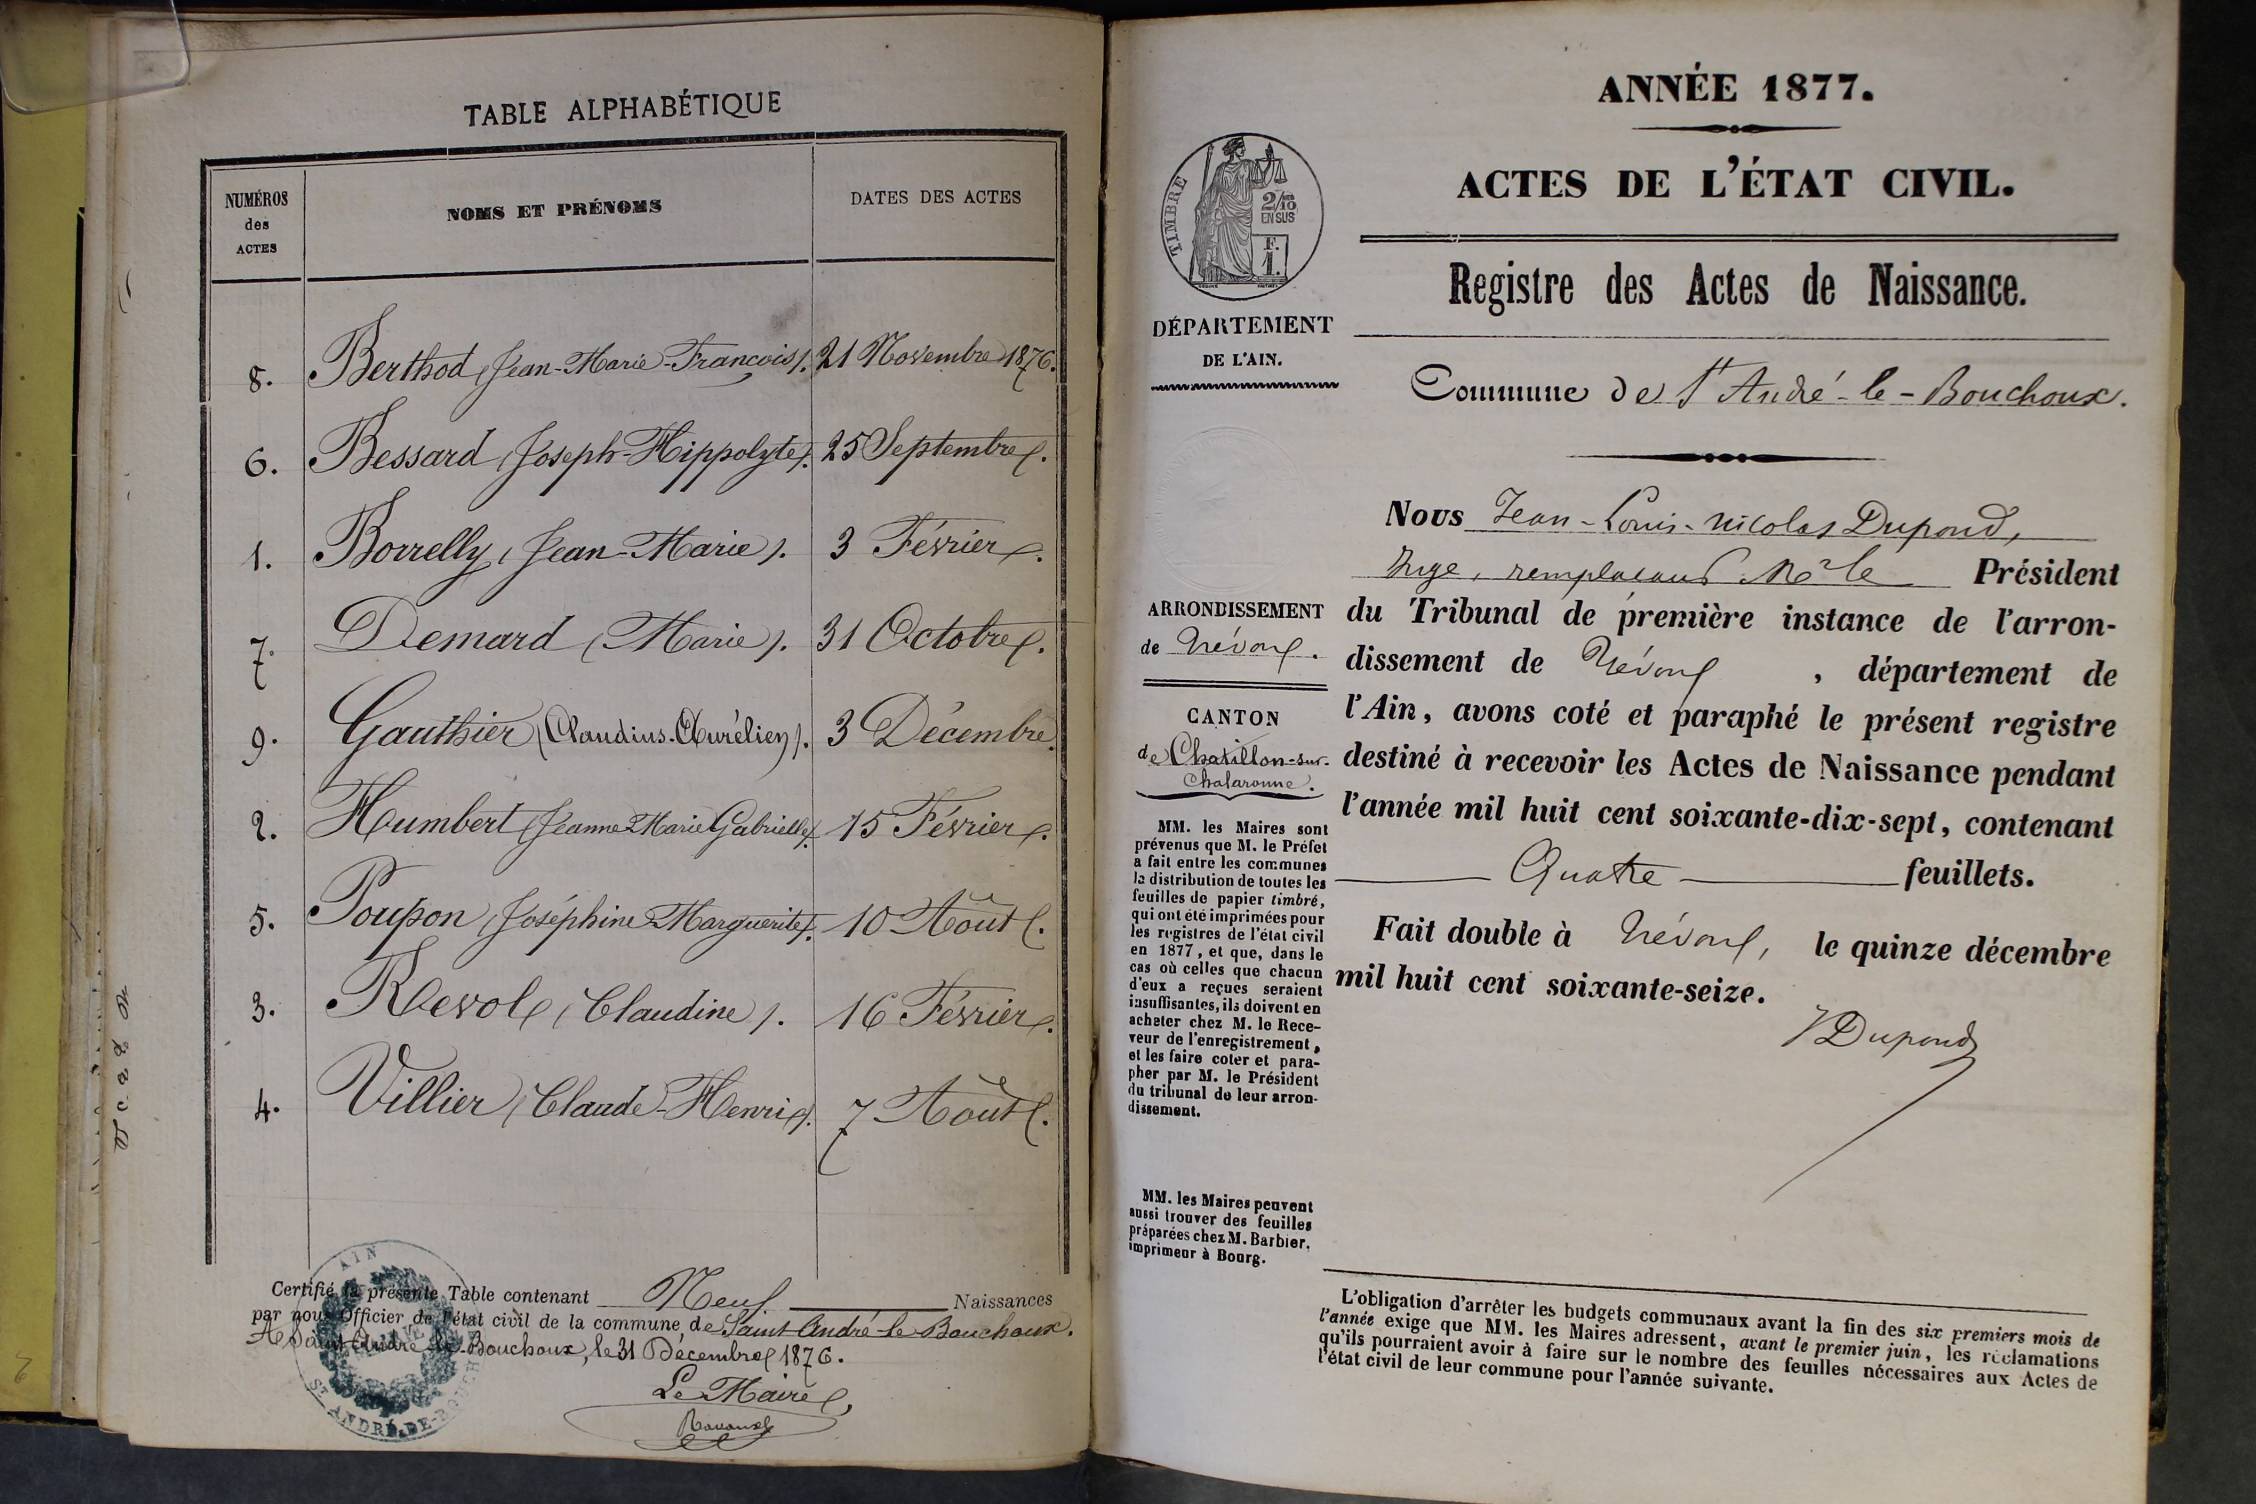 TABLE ALPHABÉTIQUE
NUMÉROS des ACTES
NOMS ET PRÉNOMS
DATES DES ACTES
8. Berthod (Jean-Marie-François). 21 Novembre 1876.
6. Bessard (Joseph-Hippolyte). 25 Septembre.
1. Borrelly (Jean-Marie). 3 Février.
7. Demard (Marie). 31 Octobre.
9. Gauthier (Claudius-Aurélien). 3 Décembre.
2. Humbert (Jeanne Marie Gabrielle). 15 Février.
5. Poupon (Joséphine Marguerite). 10 Août.
3. Revol (Claudine). 16 Février.
4. Villier (Claude-Henri). 7 Août.
Certifié la présente Table contenant Neuf Naissances
par nous Officier de l'état civil de la commune de Saint-André-le-Bouchoux.
A Saint-André-le-Bouchoux, le 31 Décembre 1876.
Le Maire,
AIN
ST ANDRÉ-DE-BOUCH
ANNÉE 1877.
ACTES DE L'ÉTAT CIVIL.
Registre des Actes de Naissance.
TIMBRE
2/10 EN SUS
F. 1.
DÉPARTEMENT
DE L'AIN.
Commune de St André-le-Bouchoux.
Nous Jean-Louis-Nicolas Dupond,
Juge, remplaçant Mr le Président
du Tribunal de première instance de l'arron-
dissement de Trévoux, département de
l'Ain, avons coté et paraphé le présent registre
destiné à recevoir les Actes de Naissance pendant
l'année mil huit cent soixante-dix-sept, contenant
Quatre feuillets.
Fait double à Trévoux, le quinze décembre
mil huit cent soixante-seize.
Dupond
ARRONDISSEMENT
de Trévoux.
CANTON
de Chatillon-sur-
Chalaronne.
MM. les Maires sont
prévenus que M. le Préfet
a fait entre les communes
la distribution de toutes les
feuilles de papier timbré,
qui ont été imprimées pour
les registres de l'état civil
en 1877, et que, dans le
cas où celles que chacun
d'eux a reçues seraient
insuffisantes, ils doivent en
acheter chez M. le Rece-
veur de l'enregistrement,
et les faire coter et para-
pher par M. le Président
du tribunal de leur arron-
dissement.
MM. les Maires peuvent
aussi trouver des feuilles
préparées chez M. Barbier,
imprimeur à Bourg.
L'obligation d'arrêter les budgets communaux avant la fin des six premiers mois de
l'année exige que MM. les Maires adressent, avant le premier juin, les réclamations
qu'ils pourraient avoir à faire sur le nombre des feuilles nécessaires aux Actes de
l'état civil de leur commune pour l'année suivante.